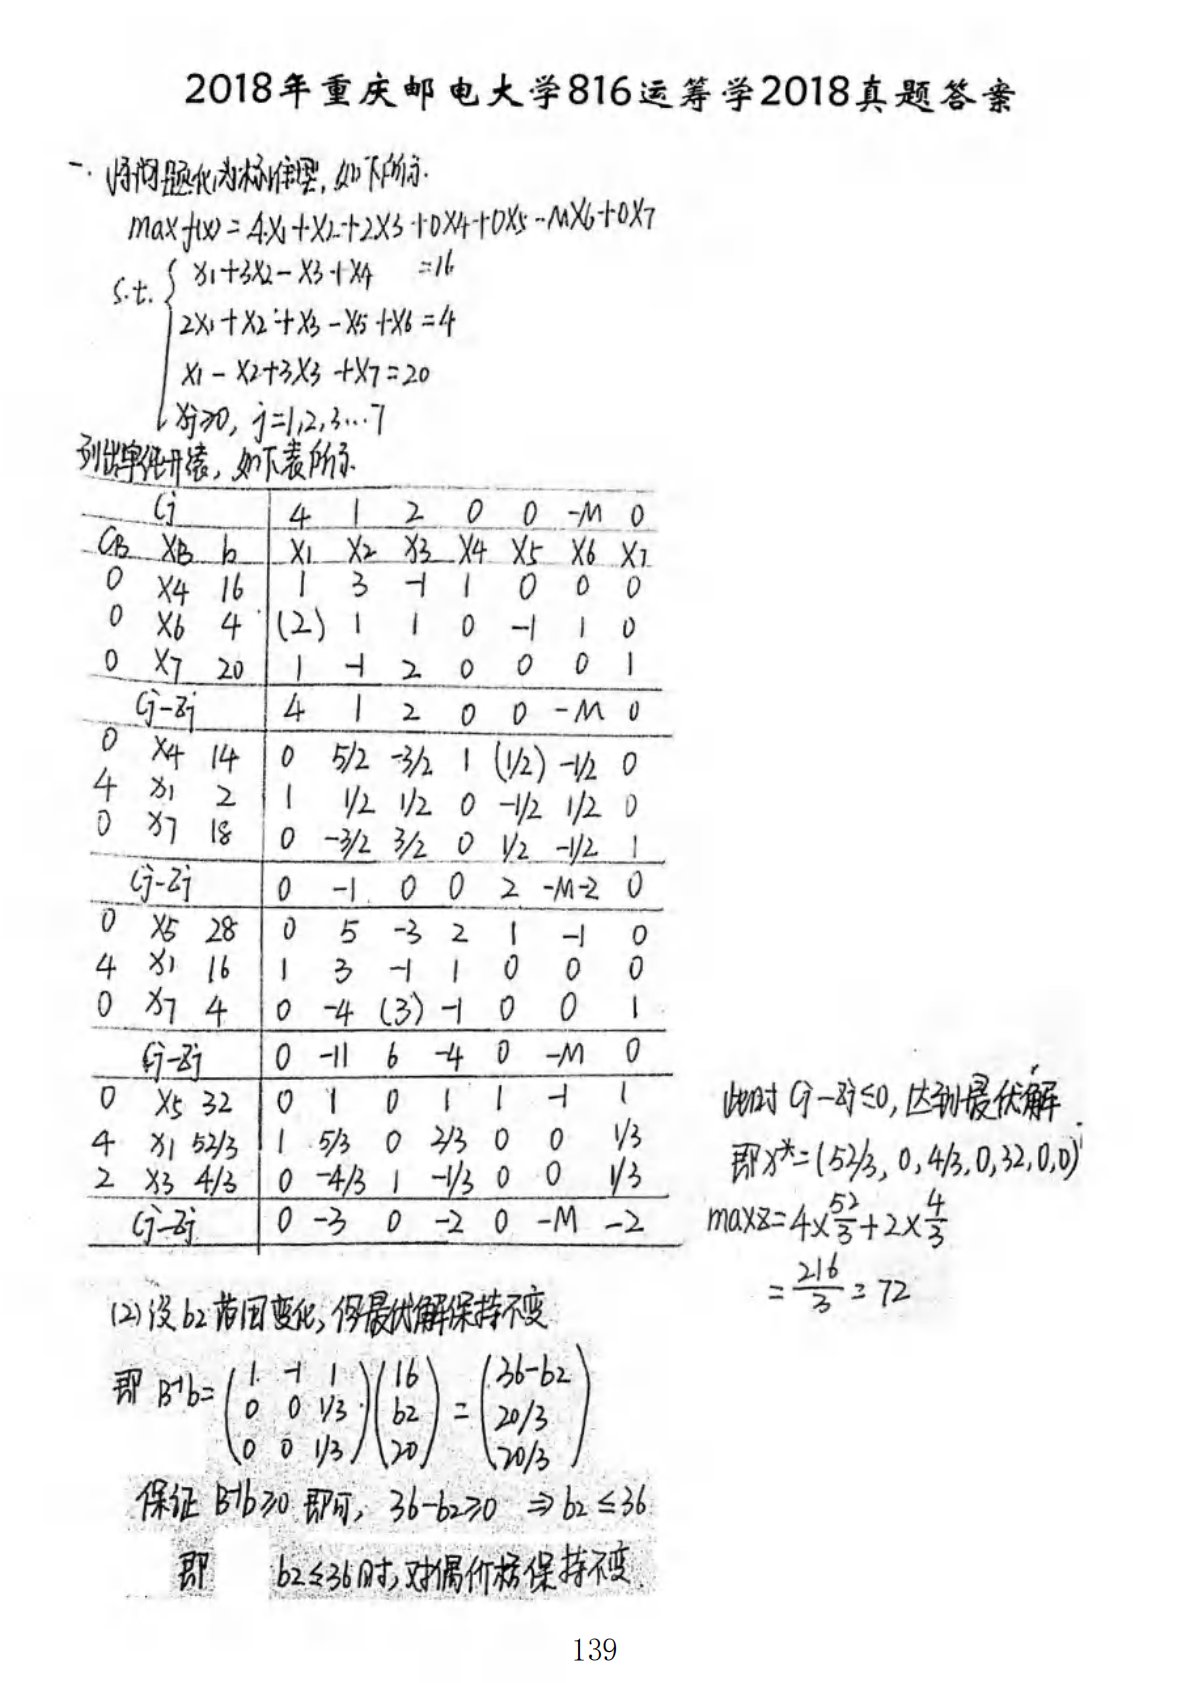 2018年重庆邮电大学816运筹学2018真题答案
一. 将问题化为标准型, 如下所示.
max f(x) = 4X1+X2+2X3+0X4+0X5-MX6+0X7
s.t. { X1+3X2-X3+X4 =16
2X1+X2+X3-X5+X6=4
X1-X2+3X3+X7=20
Xj≥0, j=1,2,3…7
列出单纯形表, 如下表所示.
Cj 4 1 2 0 0 -M 0
CB XB b X1 X2 X3 X4 X5 X6 X7
0 X4 16 1 3 -1 1 0 0 0
0 X6 4 (2) 1 1 0 -1 1 0
0 X7 20 1 -1 2 0 0 0 1
Cj-Zj 4 1 2 0 0 -M 0
0 X4 14 0 5/2 -3/2 1 (1/2) -1/2 0
4 X1 2 1 1/2 1/2 0 -1/2 1/2 0
0 X7 18 0 -3/2 3/2 0 1/2 -1/2 1
Cj-Zj 0 -1 0 0 2 -M-2 0
0 X5 28 0 5 -3 2 1 -1 0
4 X1 16 1 3 -1 1 0 0 0
0 X7 4 0 -4 (3) -1 0 0 1
Cj-Zj 0 -11 6 -4 0 -M 0
0 X5 32 0 1 0 1 1 -1 1
4 X1 52/3 1 5/3 0 2/3 0 0 1/3
2 X3 4/3 0 -4/3 1 -1/3 0 0 1/3
Cj-Zj 0 -3 0 -2 0 -M -2
此时 Cj-Zj≤0, 达到最优解.
即X*=(52/3, 0, 4/3, 0, 32, 0, 0)'
maxz=4×52/3+2×4/3
=216/3=72
(2) 设b2范围变化, 使最优解保持不变
即 B-1b= (1 -1 1 (16 (36-b2
0 0 1/3 b2 = 20/3
0 0 1/3) 20) 20/3)
保证 B-1b≥0 即可, 36-b2≥0 ⇒ b2≤36
即 b2≤36时, 对偶价格保持不变
139